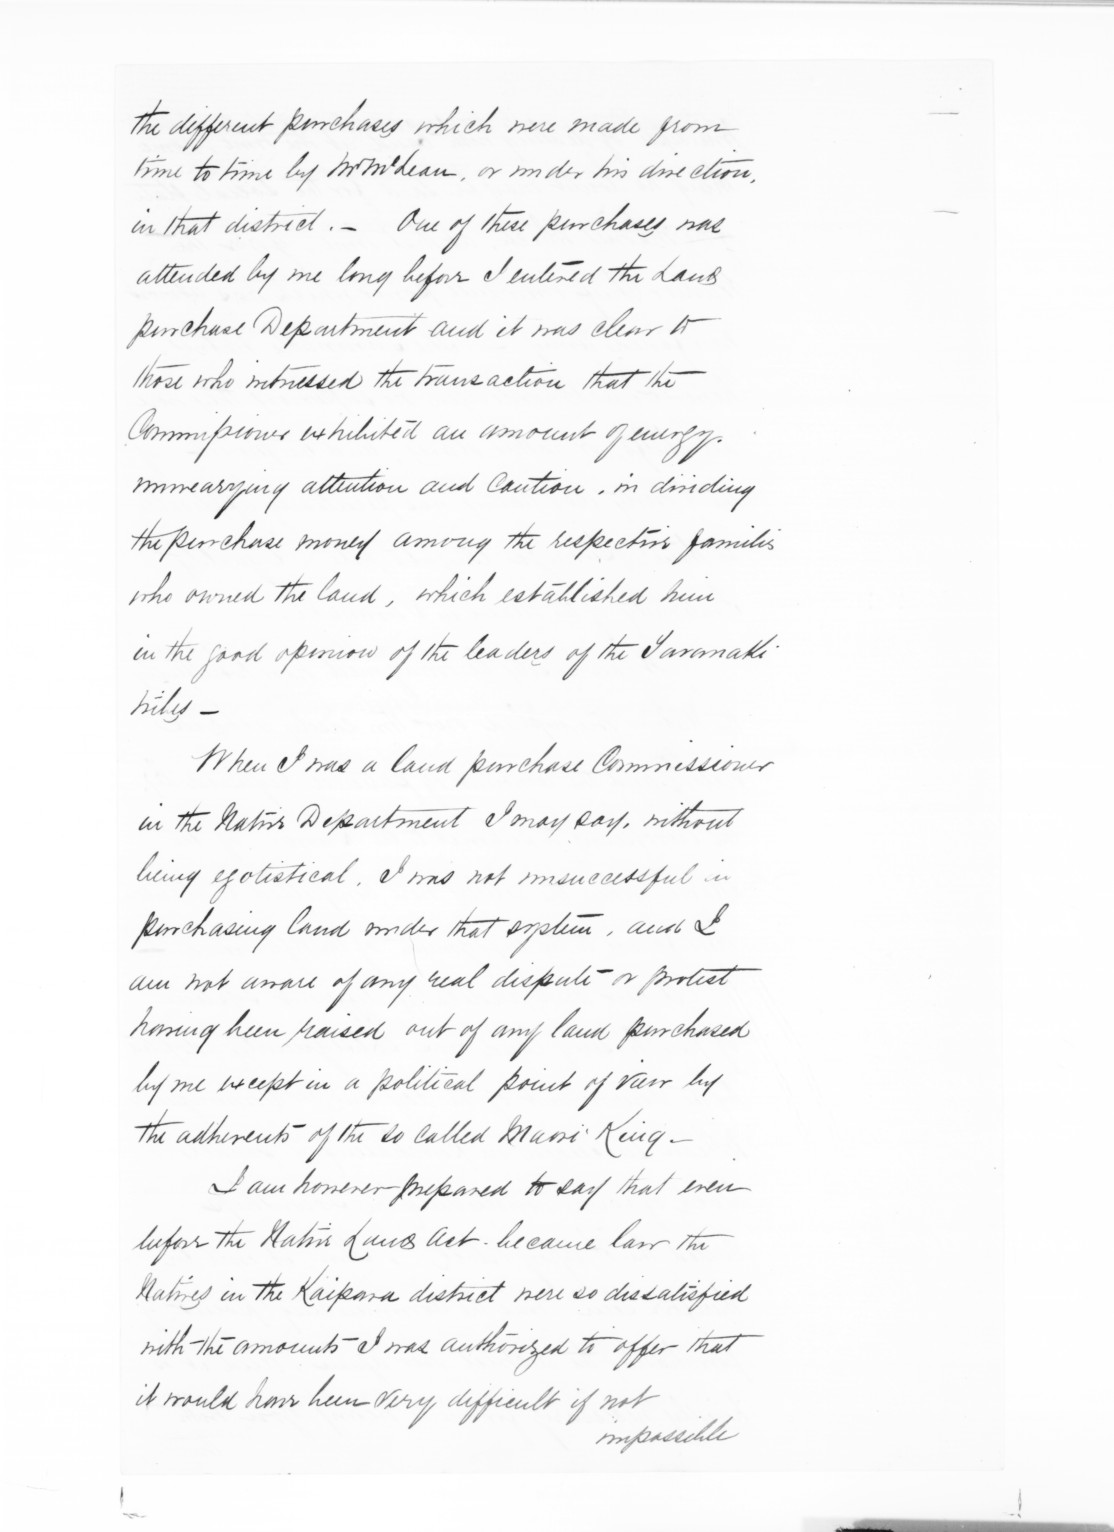 the different purchases which were made from
time to time by Mr McLean, or under his direction,
in that district. — One of these purchases was
attended by me long before I entered the Land
purchase Department and it was clear to
those who witnessed the transaction that the
Commissioner exhibited an amount of energy,
unwearying attention and caution, in dividing
the purchase money among the respective families
who owned the land, which established him
in the good opinion of the leaders of the Taranaki
tribes —
When I was a land purchase Commissioner
in the Native Department I may say, without
being egotistical, I was not unsuccessful in
purchasing land under that system, and I
am not aware of any real dispute or protest
having been raised out of any land purchased
by me except in a political point of view by
the adherents of the so called Maori King —
I am however prepared to say that even
before the Native Lands Act became law the
Natives in the Kaipara district were so dissatisfied
with the amounts I was authorized to offer that
it would have been very difficult if not
impossible